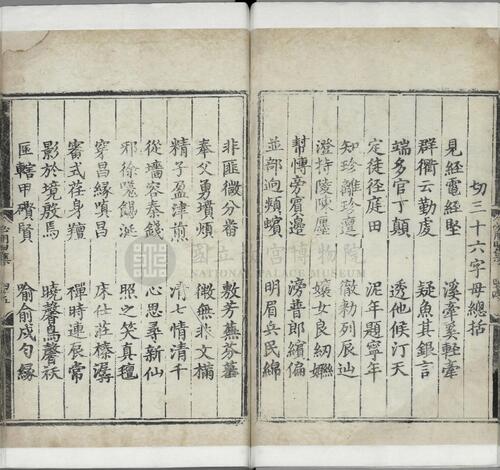 切三十六字母總括
見經電經堅 溪牽奚輕牽
群衢云勤虔 疑魚其銀言
端多官丁顛 透他候汀天
定徒徑庭田 泥年題寧年
知珍離珍邅 徹勑列辰辿
澄持陵陳廛 孃女良紉
幫愽旁賓邊 滂普郎繽偏
並部迥頻蠙 明眉兵民綿
非匪微分番 敷芳蕪芬蕃
奉父勇墳煩 微無非文樠
精子盈津煎 清七情清千
從墻容秦錢 心思尋新仙
邪徐嗟餳涎 照之笑真氊
穿昌緣嗔 床仕莊榛潺
審式荏身羶 禪時連辰常
影於境殷焉 曉馨鳥馨祆
匣轄甲礥賢 喻俞戍勻緣
國立故宮博物院
NATIONAL PALACE MUSEUM